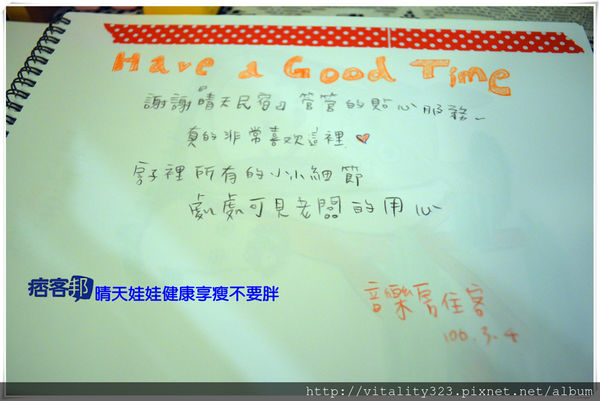 Have a Good Time
謝謝晴天民宿 管管的貼心服務~
真的非常喜歡這裡
房子裡所有的小小細節
處處可見老闆的用心
音樂房住客
100.3.4
痞客邦 晴天娃娃健康享瘦不要胖
http://vitality323.pixnet.net/album